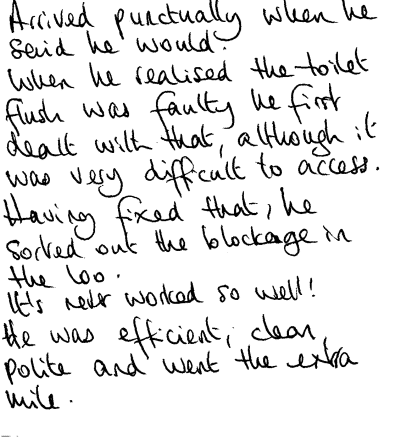 Arrived punctually when he
said he would.
When he realised the toilet
flush was faulty he first
dealt with that, although it
was very difficult to access.
Having fixed that, he
sorted out the blockage in
the loo.
It's never worked so well!
He was efficient, clean,
polite and went the extra
mile.